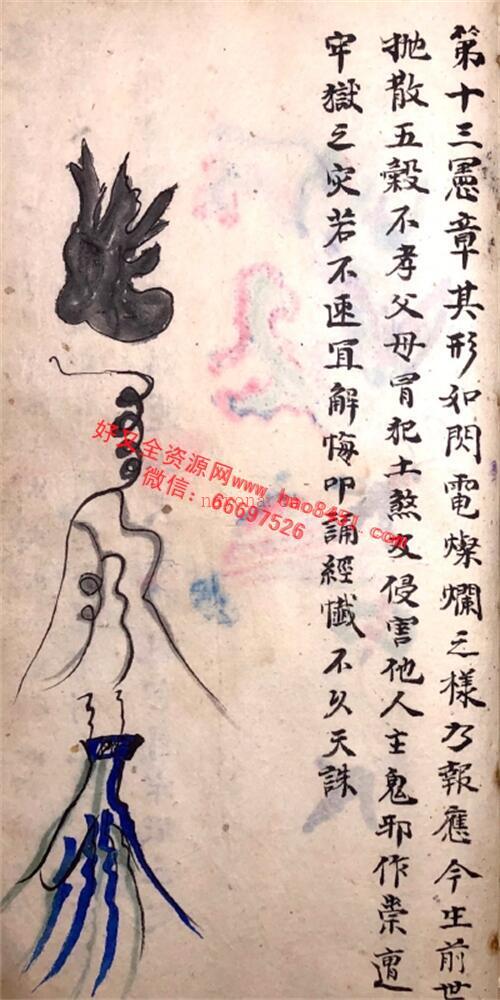 第十三憲章其形如閃電燦爛之樣乃報應今生前世
抛散五穀不孝父母冒犯土煞及侵害他人主鬼邪作祟遭
牢獄之灾若不速宜解悔叩誦經懺不久天誅
好又全资源网www.hao8451.com
微信：66697526